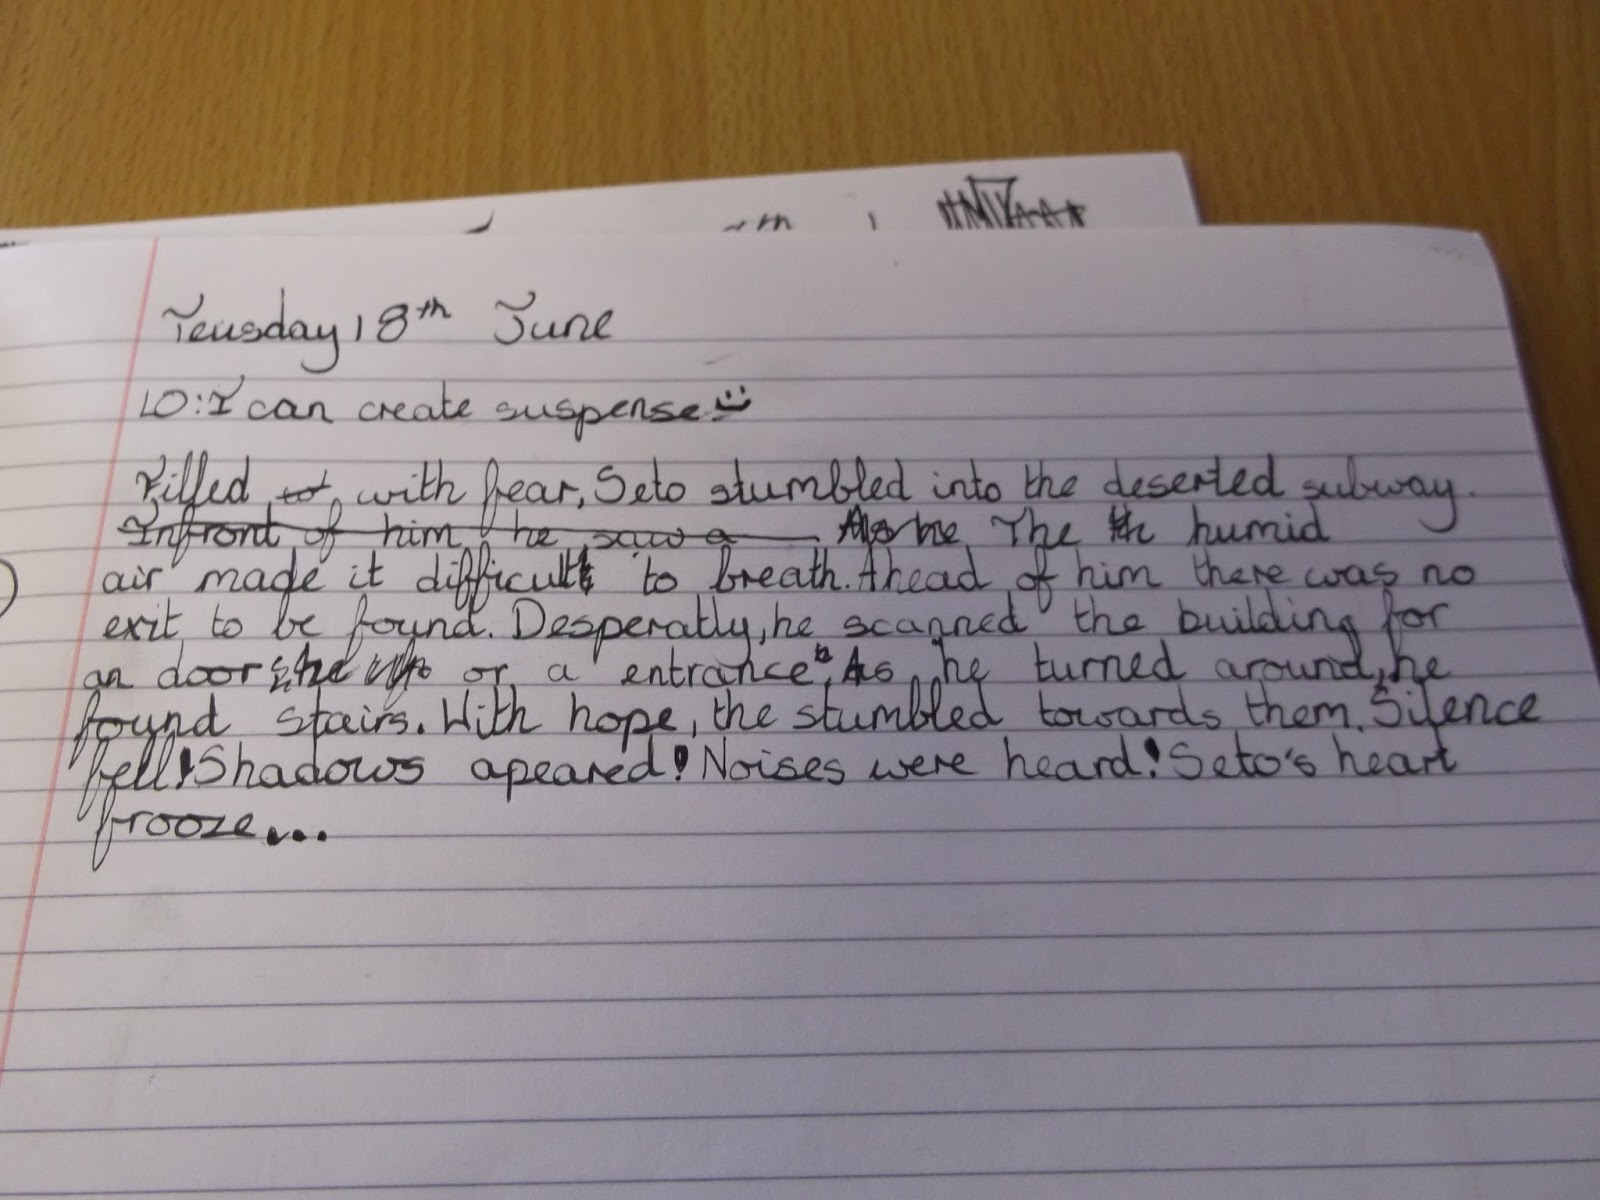 Teusday 18th June
LO: I can create suspense
Filled to with fear, Seto stumbled into the deserted subway.
Infront of him he saw a As he The th humid
air made it difficult to breath. Ahead of him there was no
exit to be found. Desperatly, he scanned the building for
an door or a entrance. As he turned around, he
found stairs. With hope, the stumbled towards them. Silence
fell! Shadows apeared! Noises were heard! Seto's heart
frooze...